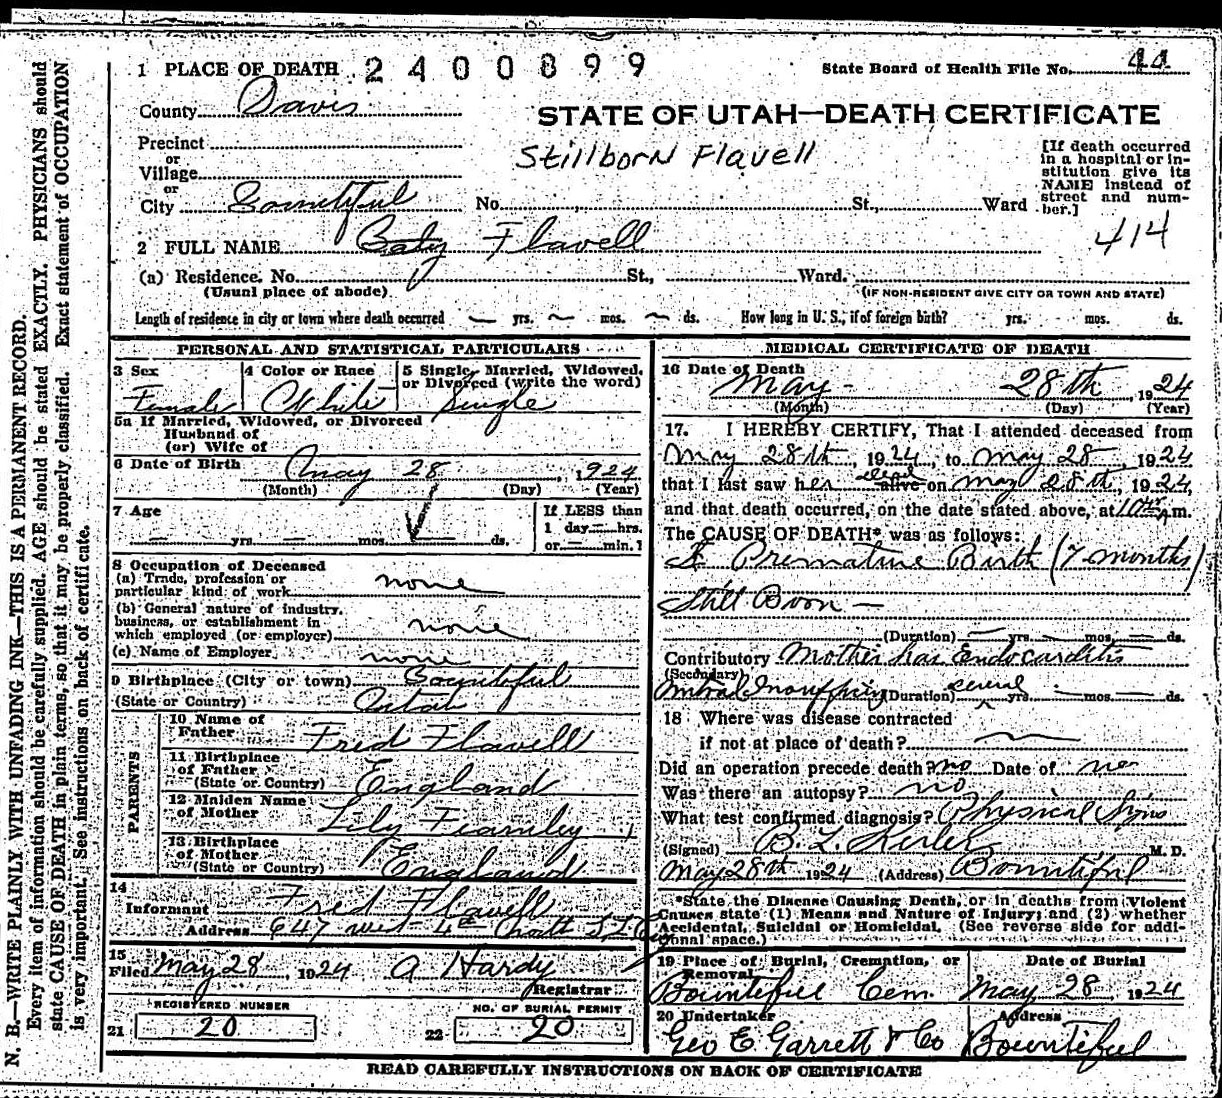 1 PLACE OF DEATH 2400899 State Board of Health File No. 44
County Davis
STATE OF UTAH—DEATH CERTIFICATE
Precinct
or
Village
or
City Bountiful No. St., Ward
Stillborn Flavell
[If death occurred
in a hospital or in-
stitution give its
NAME instead of
street and num-
ber.]
414
2 FULL NAME Baby Flavell
(a) Residence. No. St., Ward.
(Usual place of abode) (IF NON-RESIDENT GIVE CITY OR TOWN AND STATE)
Length of residence in city or town where death occurred — yrs. — mos. — ds. How long in U. S., if of foreign birth? yrs. mos. ds.
PERSONAL AND STATISTICAL PARTICULARS
3 Sex 4 Color or Race 5 Single, Married, Widowed,
or Divorced (write the word)
Female White Single
5a If Married, Widowed, or Divorced
Husband of
(or) Wife of
6 Date of Birth May 28, 1924
(Month) (Day) (Year)
7 Age
— yrs. — mos. ds.
If LESS than
1 day — hrs.
or — min.
8 Occupation of Deceased
(a) Trade, profession or
particular kind of work none
(b) General nature of industry,
business, or establishment in
which employed (or employer) none
(c) Name of Employer none
9 Birthplace (City or town) Bountiful
(State or Country) Utah
PARENTS
10 Name of
Father Fred Flavell
11 Birthplace
of Father
(State or Country) England
12 Maiden Name
of Mother Lily Fearnley
13 Birthplace
of Mother
(State or Country) England
14
Informant Fred Flavell
Address 647 West 4th
15
Filed May 28, 1924 A Hardy
Registrar
REGISTERED NUMBER NO. OF BURIAL PERMIT
21 20 22 20
MEDICAL CERTIFICATE OF DEATH
16 Date of Death
May 28th, 1924
(Month) (Day) (Year)
17. I HEREBY CERTIFY, That I attended deceased from
May 28th, 1924, to May 28, 1924
that I last saw her dead alive on May 28th, 1924,
and that death occurred, on the date stated above, at 10 m.
The CAUSE OF DEATH* was as follows:
Premature Birth (7 months)
Still Born —
(Duration) — yrs. — mos. — ds.
Contributory Mother has Endocarditis
(Secondary)
Mitral (Duration) several yrs. — mos. — ds.
18 Where was disease contracted
if not at place of death?
Did an operation precede death? no Date of no
Was there an autopsy? no
What test confirmed diagnosis? Physical Signs
(Signed) B. L. M. D.
May 28th 1924 (Address) Bountiful
*State the Disease Causing Death, or in deaths from Violent
Causes state (1) Means and Nature of Injury; and (2) whether
Accidental, Suicidal or Homicidal. (See reverse side for addi-
tional space.)
19 Place of Burial, Cremation, or
Removal
Date of Burial
Bountiful Cem. May 28 1924
20 Undertaker Address
Geo E. Garrett & Co Bountiful
READ CAREFULLY INSTRUCTIONS ON BACK OF CERTIFICATE
N. B.—WRITE PLAINLY WITH UNFADING INK—THIS IS A PERMANENT RECORD.
Every item of information should be carefully supplied. AGE should be stated EXACTLY. PHYSICIANS should
state CAUSE OF DEATH in plain terms, so that it may be properly classified. Exact statement of OCCUPATION
is very important. See instructions on back of certificate.